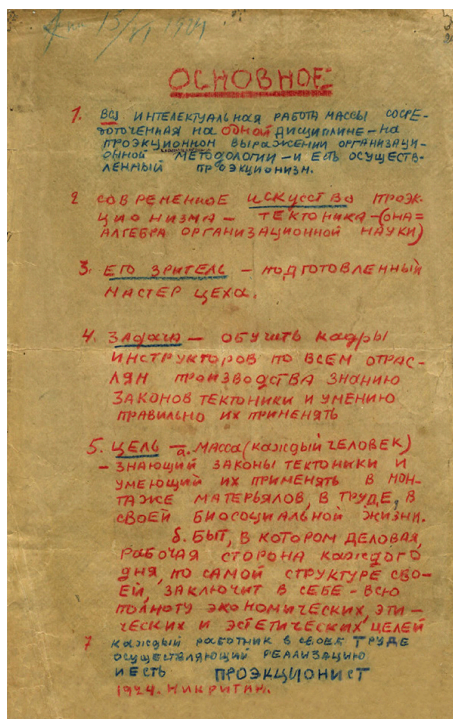 13/VI 1924
ОСНОВНОЕ
1. ВСЯ ИНТЕЛЕКТУАЛЬНАЯ РАБОТА МАССЫ СОСРЕ-
ДОТОЧЕННАЯ НА ОДНОЙ ДИСЦИПЛИНЕ – НА
ПРОЭКЦИОННОМ ВЫРАЖЕНИИ ОРГАНИЗАЦИ-
ОННОЙ МЕТОДОЛОГИИ – И ЕСТЬ ОСУЩЕСТ-
ВЛЕННЫЙ ПРОЭКЦИОНИЗМ.
2 СОВРЕМЕННОЕ ИСКУССТВО ПРОЭК-
ЦИОНИЗМА – ТЕКТОНИКА – (ОНА =
АЛГЕБРА ОРГАНИЗАЦИОННОЙ НАУКИ)
3. ЕГО ЗРИТЕЛЬ – ПОДГОТОВЛЕННЫЙ
МАСТЕР ЦЕХА.
4. ЗАДАЧА – ОБУЧИТЬ КАДРЫ
ИНСТРУКТОРОВ ПО ВСЕМ ОТРАС-
ЛЯМ ПРОИЗВОДСТВА ЗНАНИЮ
ЗАКОНОВ ТЕКТОНИКИ И УМЕНИЮ
ПРАВИЛЬНО ИХ ПРИМЕНЯТЬ
5. ЦЕЛЬ – а. МАССА (КАЖДЫЙ ЧЕЛОВЕК)
– ЗНАЮЩИЙ ЗАКОНЫ ТЕКТОНИКИ И
УМЕЮЩИЙ ИХ ПРИМЕНЯТЬ В МОН-
ТАЖЕ МАТЕРЬЯЛОВ, В ТРУДЕ, В
СВОЕЙ БИОСОЦИАЛЬНОЙ ЖИЗНИ.
б. БЫТ, В КОТОРОМ ДЕЛОВАЯ,
РАБОЧАЯ СТОРОНА КАЖДОГО
ДНЯ, ПО САМОЙ СТРУКТУРЕ СВО-
ЕЙ, ЗАКЛЮЧИТ В СЕБЕ – ВСЮ
ПОЛНОТУ ЭКОНОМИЧЕСКИХ, ЭТИ-
ЧЕСКИХ И ЭСТЕТИЧЕСКИХ ЦЕЛЕЙ
7 КАЖДЫЙ РАБОТНИК В СВОЕМ ТРУДЕ
ОСУЩЕСТВЛЯЮЩИЙ РЕАЛИЗАЦИЮ
И ЕСТЬ ПРОЭКЦИОНИСТ
1924. НИКРИТИН.